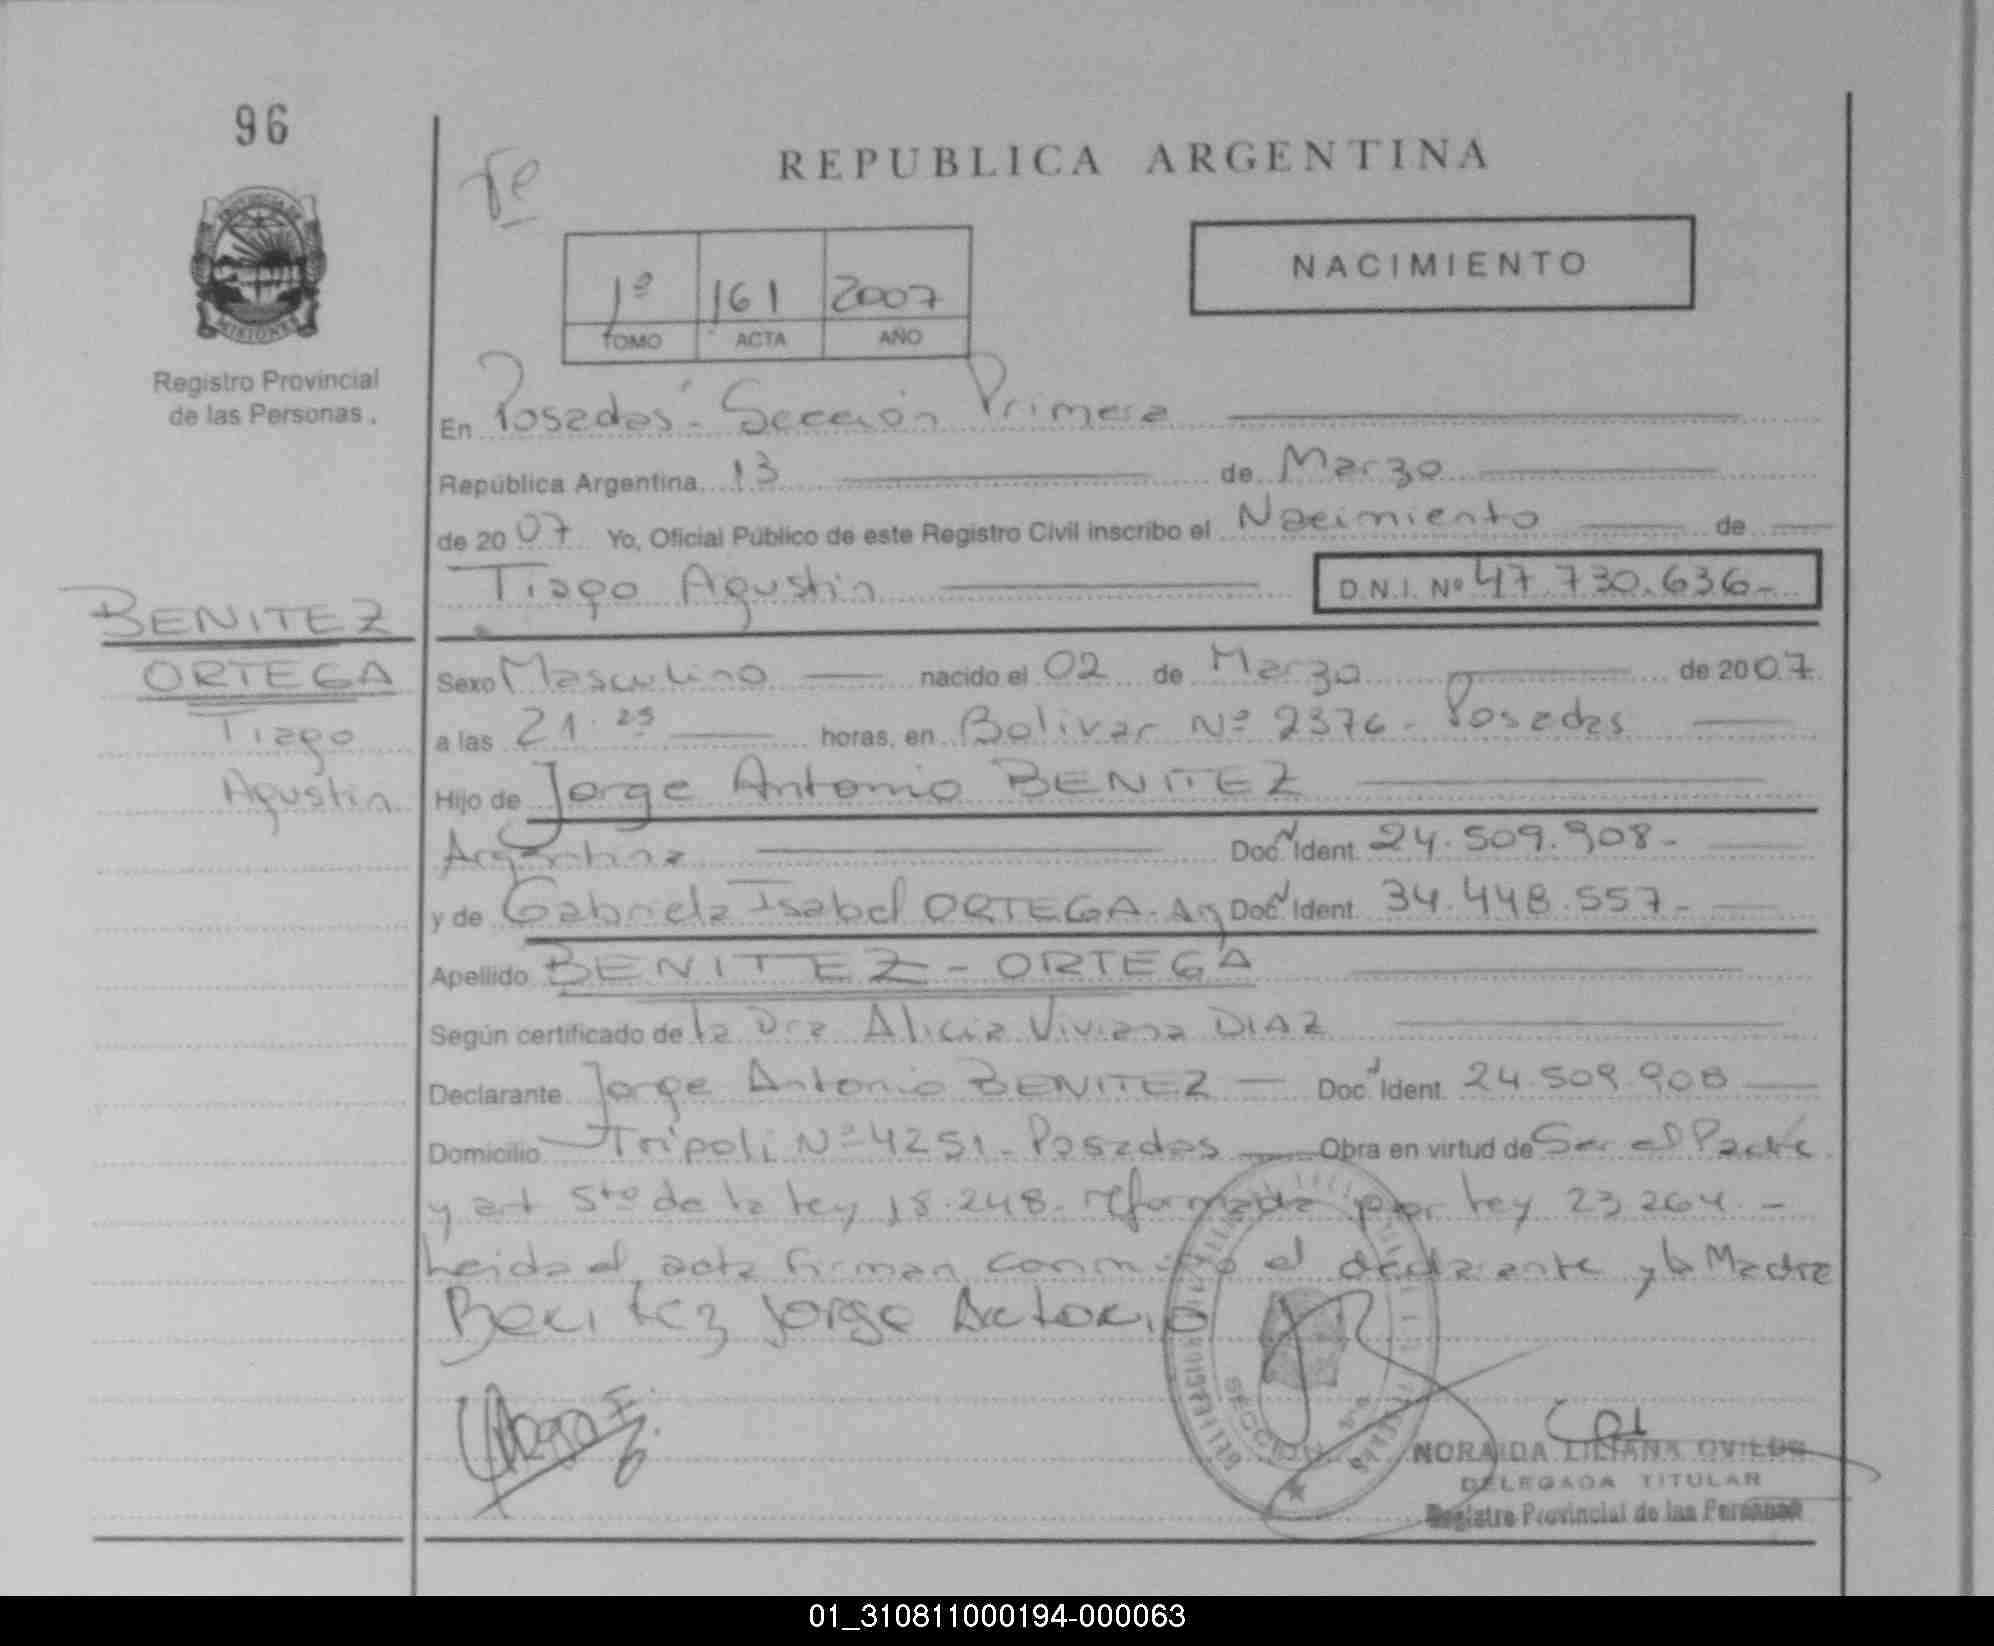 96
REPUBLICA ARGENTINA
NACIMIENTO
1º 161 2007
TOMO ACTA AÑO
PROVINCIA DE
MISIONES
Registro Provincial
de las Personas.
En Posadas - Sección Primera
República Argentina, 13 de Marzo
de 2007 Yo, Oficial Público de este Registro Civil inscribo el Nacimiento de
Tiago Agustin D.N.I. Nº 47.730.636-
BENITEZ
ORTEGA
Tiago
Agustin
Sexo Masculino nacido el 02 de Marzo de 2007
a las 21.25 horas, en Bolivar Nº 2376 - Posadas
Hijo de Jorge Antonio BENITEZ
Argentina Doc. Ident. 24.509.908-
y de Gabriela Isabel ORTEGA - Arg Doc. Ident. 34.448.557-
Apellido BENITEZ - ORTEGA
Según certificado de la Dra Alicia Viviana DIAZ
Declarante Jorge Antonio BENITEZ - Doc. Ident. 24.509.908
Domicilio Tripoli Nº 4251 - Posadas Obra en virtud de Ser el Padre
y art 5to de la Ley 18.248 - reformada por Ley 23.264.-
Leida el acta firman conmigo el declarante y la Madre
Benitez Jorge Antonio
SECCION
NORAIDA LILIANA OVIEDO
DELEGADA TITULAR
Registro Provincial de las Personas
01_310811000194-000063